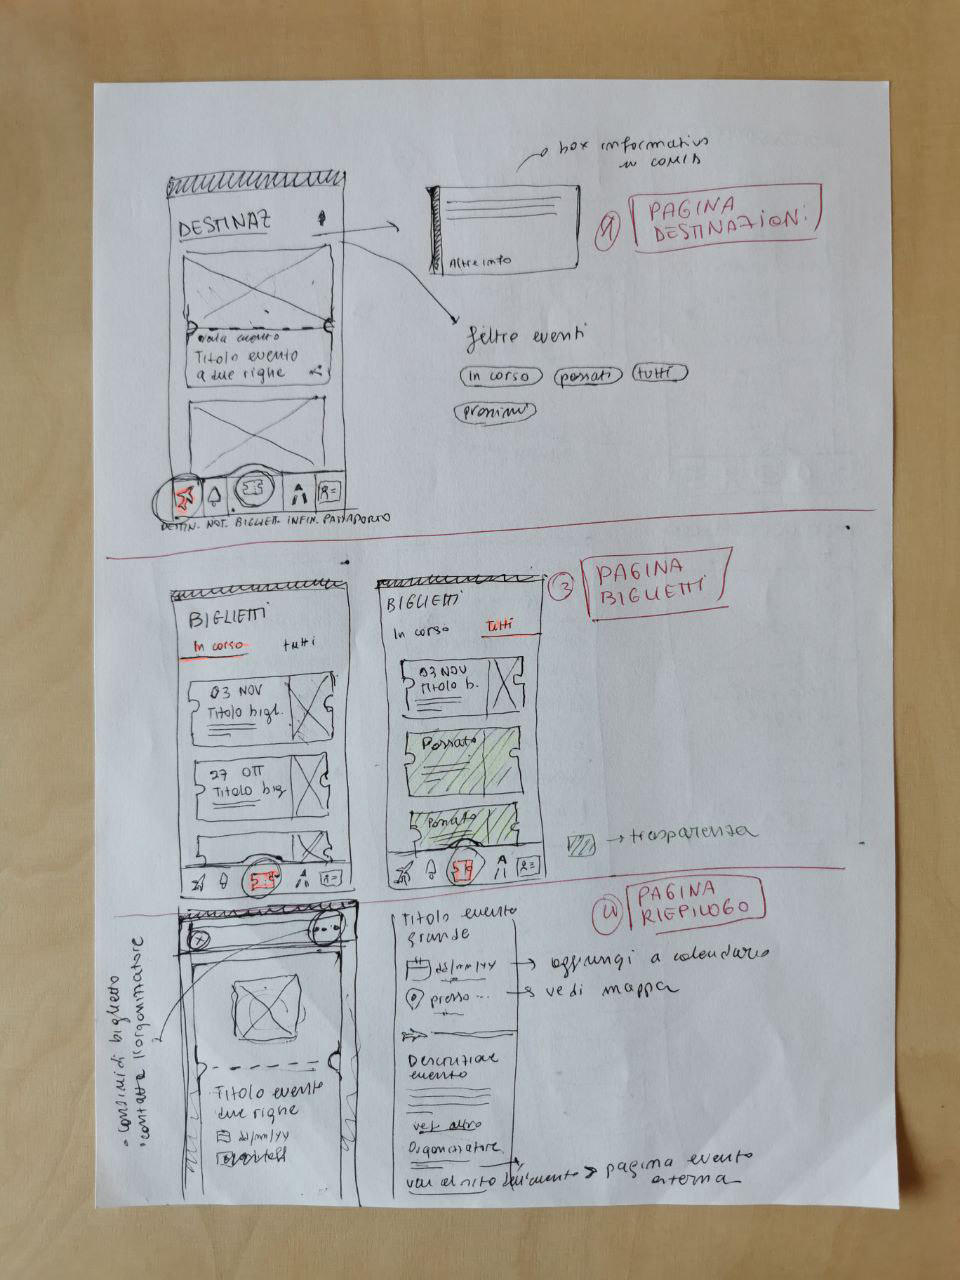 box informativo
in COMIB
1
PAGINA
DESTINAZIONI
DESTINAZ
Altre info
data evento
Titolo evento
a due righe
filtro eventi
In corso
passati
tutti
prossimi
DESTIN. NOT. BIGLIET. INFIN. PASSAPORTO
3
PAGINA
BIGLIETTI
BIGLIETTI
In corso
tutti
03 NOV
Titolo bigl.
27 OTT
Titolo big
BIGLIETTI
In corso
Tutti
03 NOV
Titolo b.
Passato
Passato
trasparenza
4
PAGINA
RIEPILOGO
• Condividi biglietto
• contatta l'organizzatore
Titolo evento
due righe
dd/mm/yy
Titolo evento
grande
dd/mm/yy
aggiungi a calendario
presso...
vedi mappa
Descrizione
evento
vedi altro
Organizzatore
vai al sito dell'evento
pagina evento
esterna